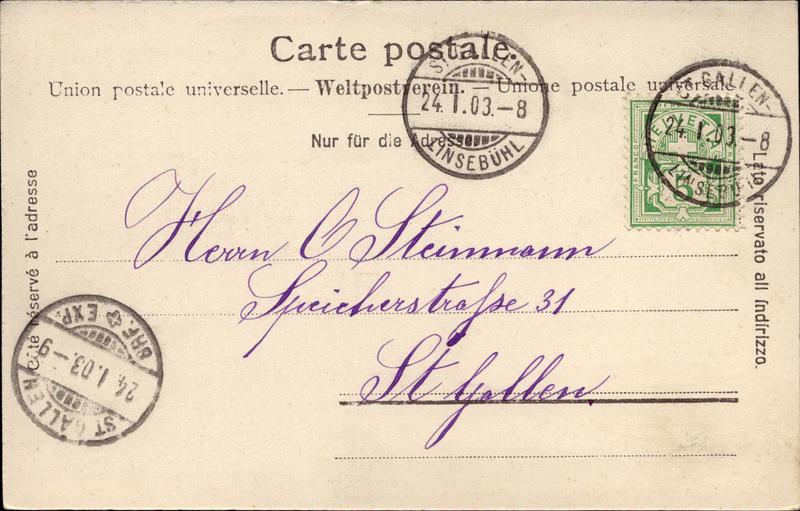 Carte postale.
Union postale universelle. — Weltpostverein. — Unione postale universale
Nur für die Adresse
Côté réservé à l'adresse
Lato riservato all indirizzo.
ST. GALLEN-
24. I. 03. – 8
LINSEBÜHL
ST. GALLEN-
24. I. 03. – 8
LINSEBÜHL
FRANCO
5
Herrn O Steinmann
Speicherstraße 31
St Gallen
ST GALLEN
24. I. 03. – 9
BRF EXP.